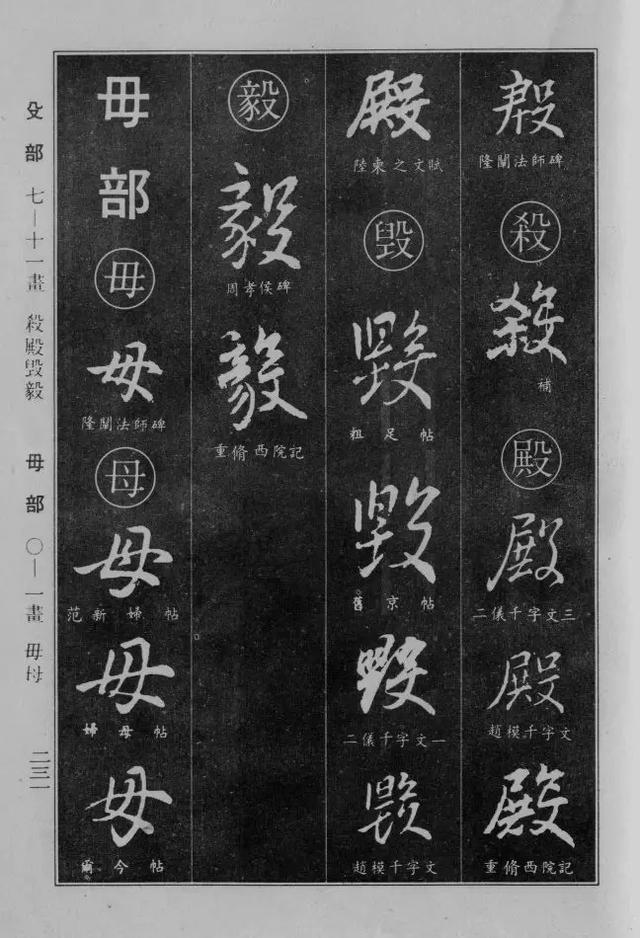 殺
隆闡法師碑
殺
殺
補
殿
殿
二儀千字文三
殿
趙模千字文
殿
重脩西院記
殿
陸柬之文賦
毀
毀
粗足帖
毀
舊京帖
毀
二儀千字文一
毀
趙模千字文
毅
毅
周孝侯碑
毅
重脩西院記
毋部
毋
毋
隆闡法師碑
母
母
范新婦帖
母
婦母帖
母
爾今帖
殳部 七—十一畫 殺殿毀毅 毋部 〇—一畫 毋母 二三一